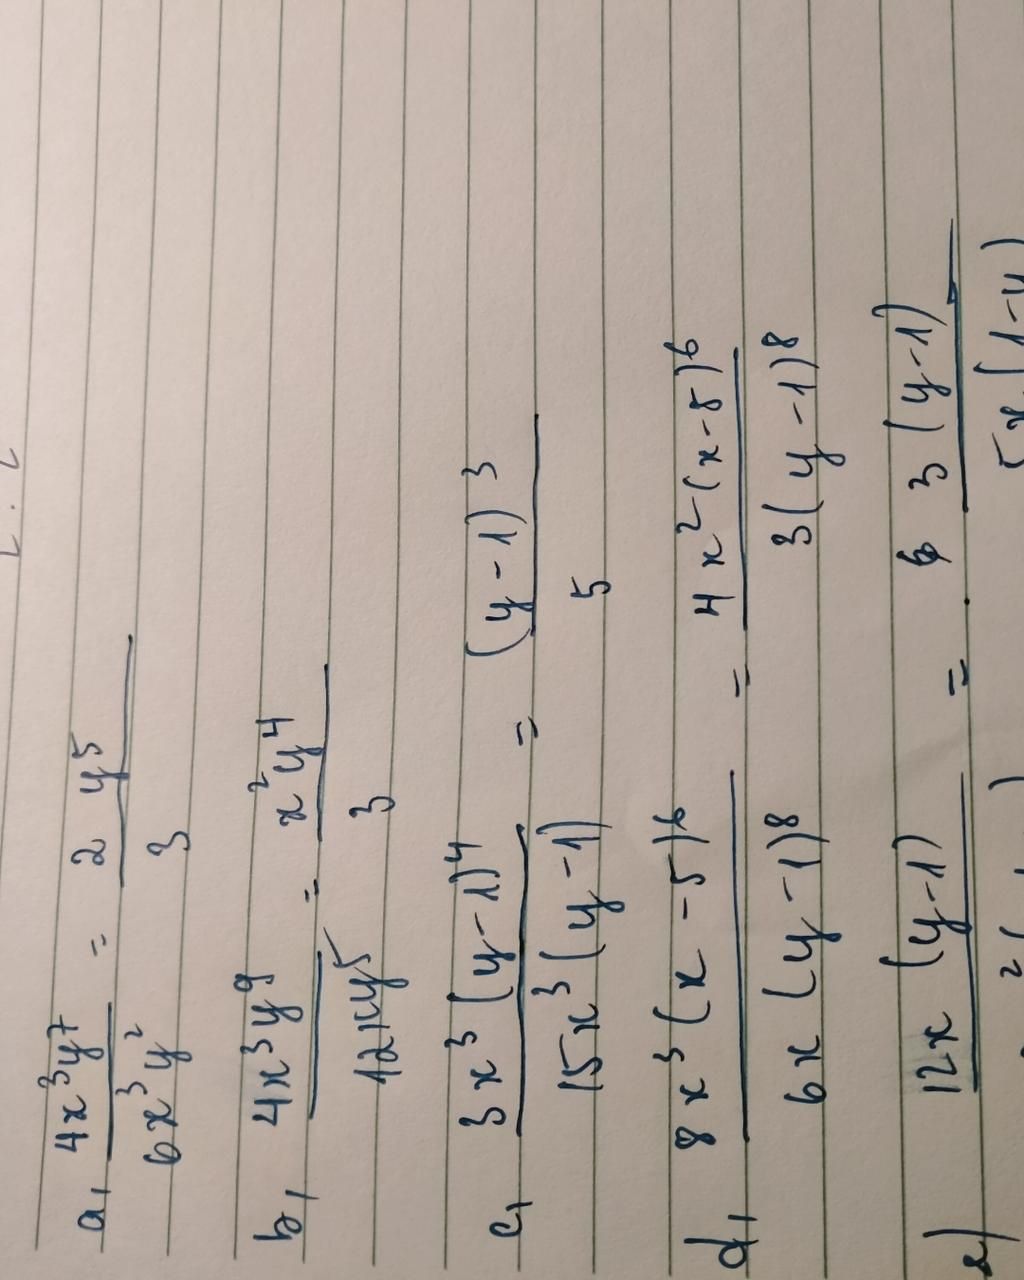 a, 4x³y⁷ / 6x³y² = 2 y⁵ / 3
b, 4x³y⁹ / 12xy⁵ = x²y⁴ / 3
c, 3x³(y-1)⁴ / 15x³(y-1) = (y-1)³ / 5
d, 8x³(x-5)⁶ / 6x(y-1)⁸ = 4x²(x-5)⁶ / 3(y-1)⁸
e) 12x(y-1) = 3(y-1) / 5x(1-y)